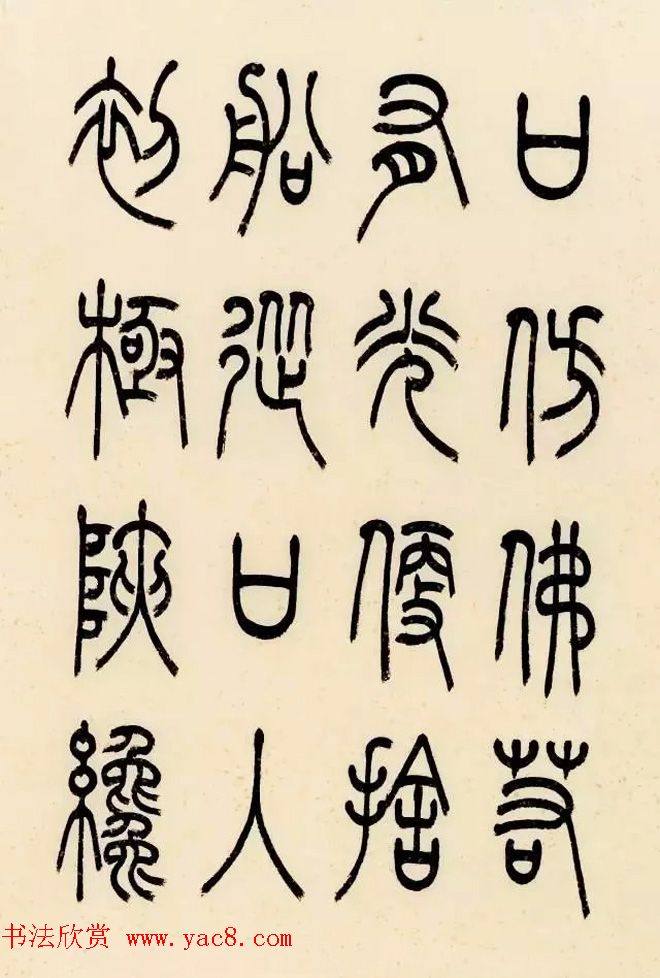 口仿佛若
有光便舍
船從口入
初極陜纔
书法欣赏 www.yac8.com